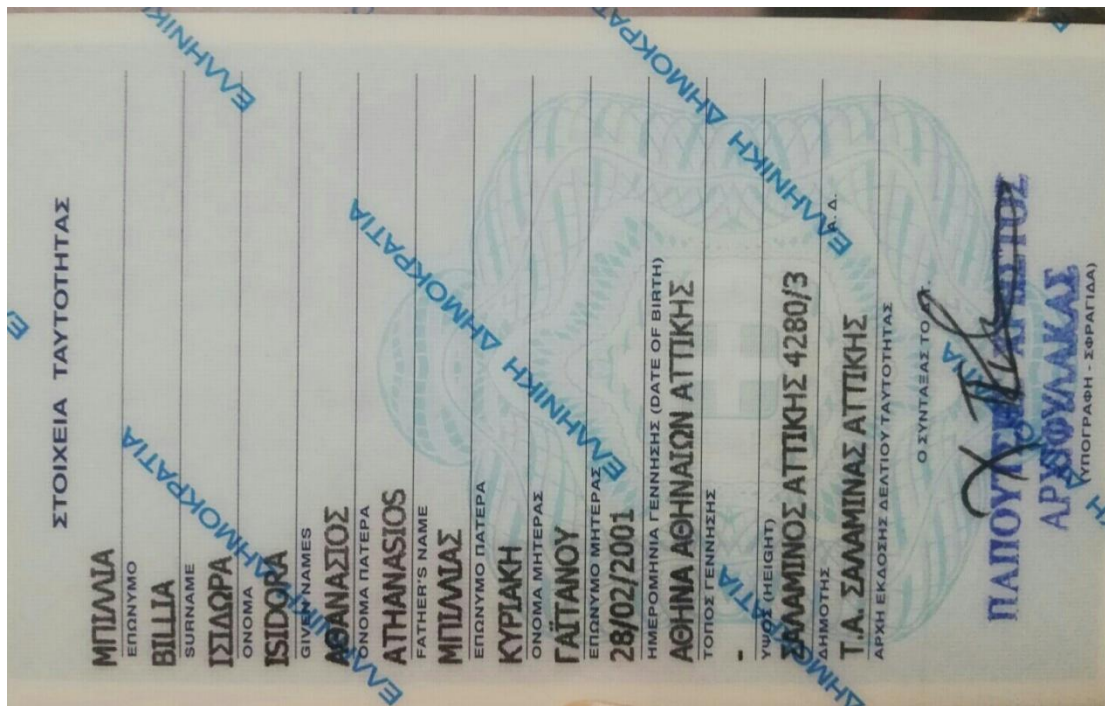 ΣΤΟΙΧΕΙΑ ΤΑΥΤΟΤΗΤΑΣ
ΜΠΙΛΛΙΑ
ΕΠΩΝΥΜΟ
BILLIA
SURNAME
ΙΣΙΔΩΡΑ
ΟΝΟΜΑ
ISIDORA
GIVEN NAMES
ΑΘΑΝΑΣΙΟΣ
ΟΝΟΜΑ ΠΑΤΕΡΑ
ATHANASIOS
FATHER'S NAME
ΜΠΙΛΛΙΑΣ
ΕΠΩΝΥΜΟ ΠΑΤΕΡΑ
ΚΥΡΙΑΚΗ
ΟΝΟΜΑ ΜΗΤΕΡΑΣ
ΓΑΪΤΑΝΟΥ
ΕΠΩΝΥΜΟ ΜΗΤΕΡΑΣ
28/02/2001
ΗΜΕΡΟΜΗΝΙΑ ΓΕΝΝΗΣΗΣ (DATE OF BIRTH)
ΑΘΗΝΑ ΑΘΗΝΑΙΩΝ ΑΤΤΙΚΗΣ
ΤΟΠΟΣ ΓΕΝΝΗΣΗΣ
-
ΥΨΟΣ (HEIGHT)
ΣΑΛΑΜΙΝΟΣ ΑΤΤΙΚΗΣ 4280/3
ΔΗΜΟΤΗΣ Α. Δ.
Τ.Α. ΣΑΛΑΜΙΝΑΣ ΑΤΤΙΚΗΣ
ΑΡΧΗ ΕΚΔΟΣΗΣ ΔΕΛΤΙΟΥ ΤΑΥΤΟΤΗΤΑΣ
Ο ΣΥΝΤΑΞΑΣ ΤΟ
ΑΡΧΙΦΥΛΑΚΑΣ
(ΥΠΟΓΡΑΦΗ - ΣΦΡΑΓΙΔΑ)
ΕΛΛΗΝΙΚΗ ΔΗΜΟΚΡΑΤΙΑ
ΕΛΛΗΝΙΚΗ ΔΗΜΟΚΡΑΤΙΑ
ΕΛΛΗΝΙΚΗ ΔΗΜΟΚΡΑΤΙΑ